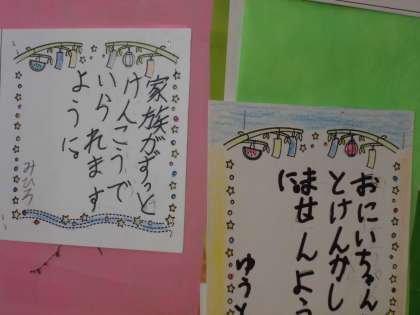 家族がずっと
けんこうで
いられます
ように。
みひろ
おにいちゃん
とけんかし
ませんよう
に
ゆうと